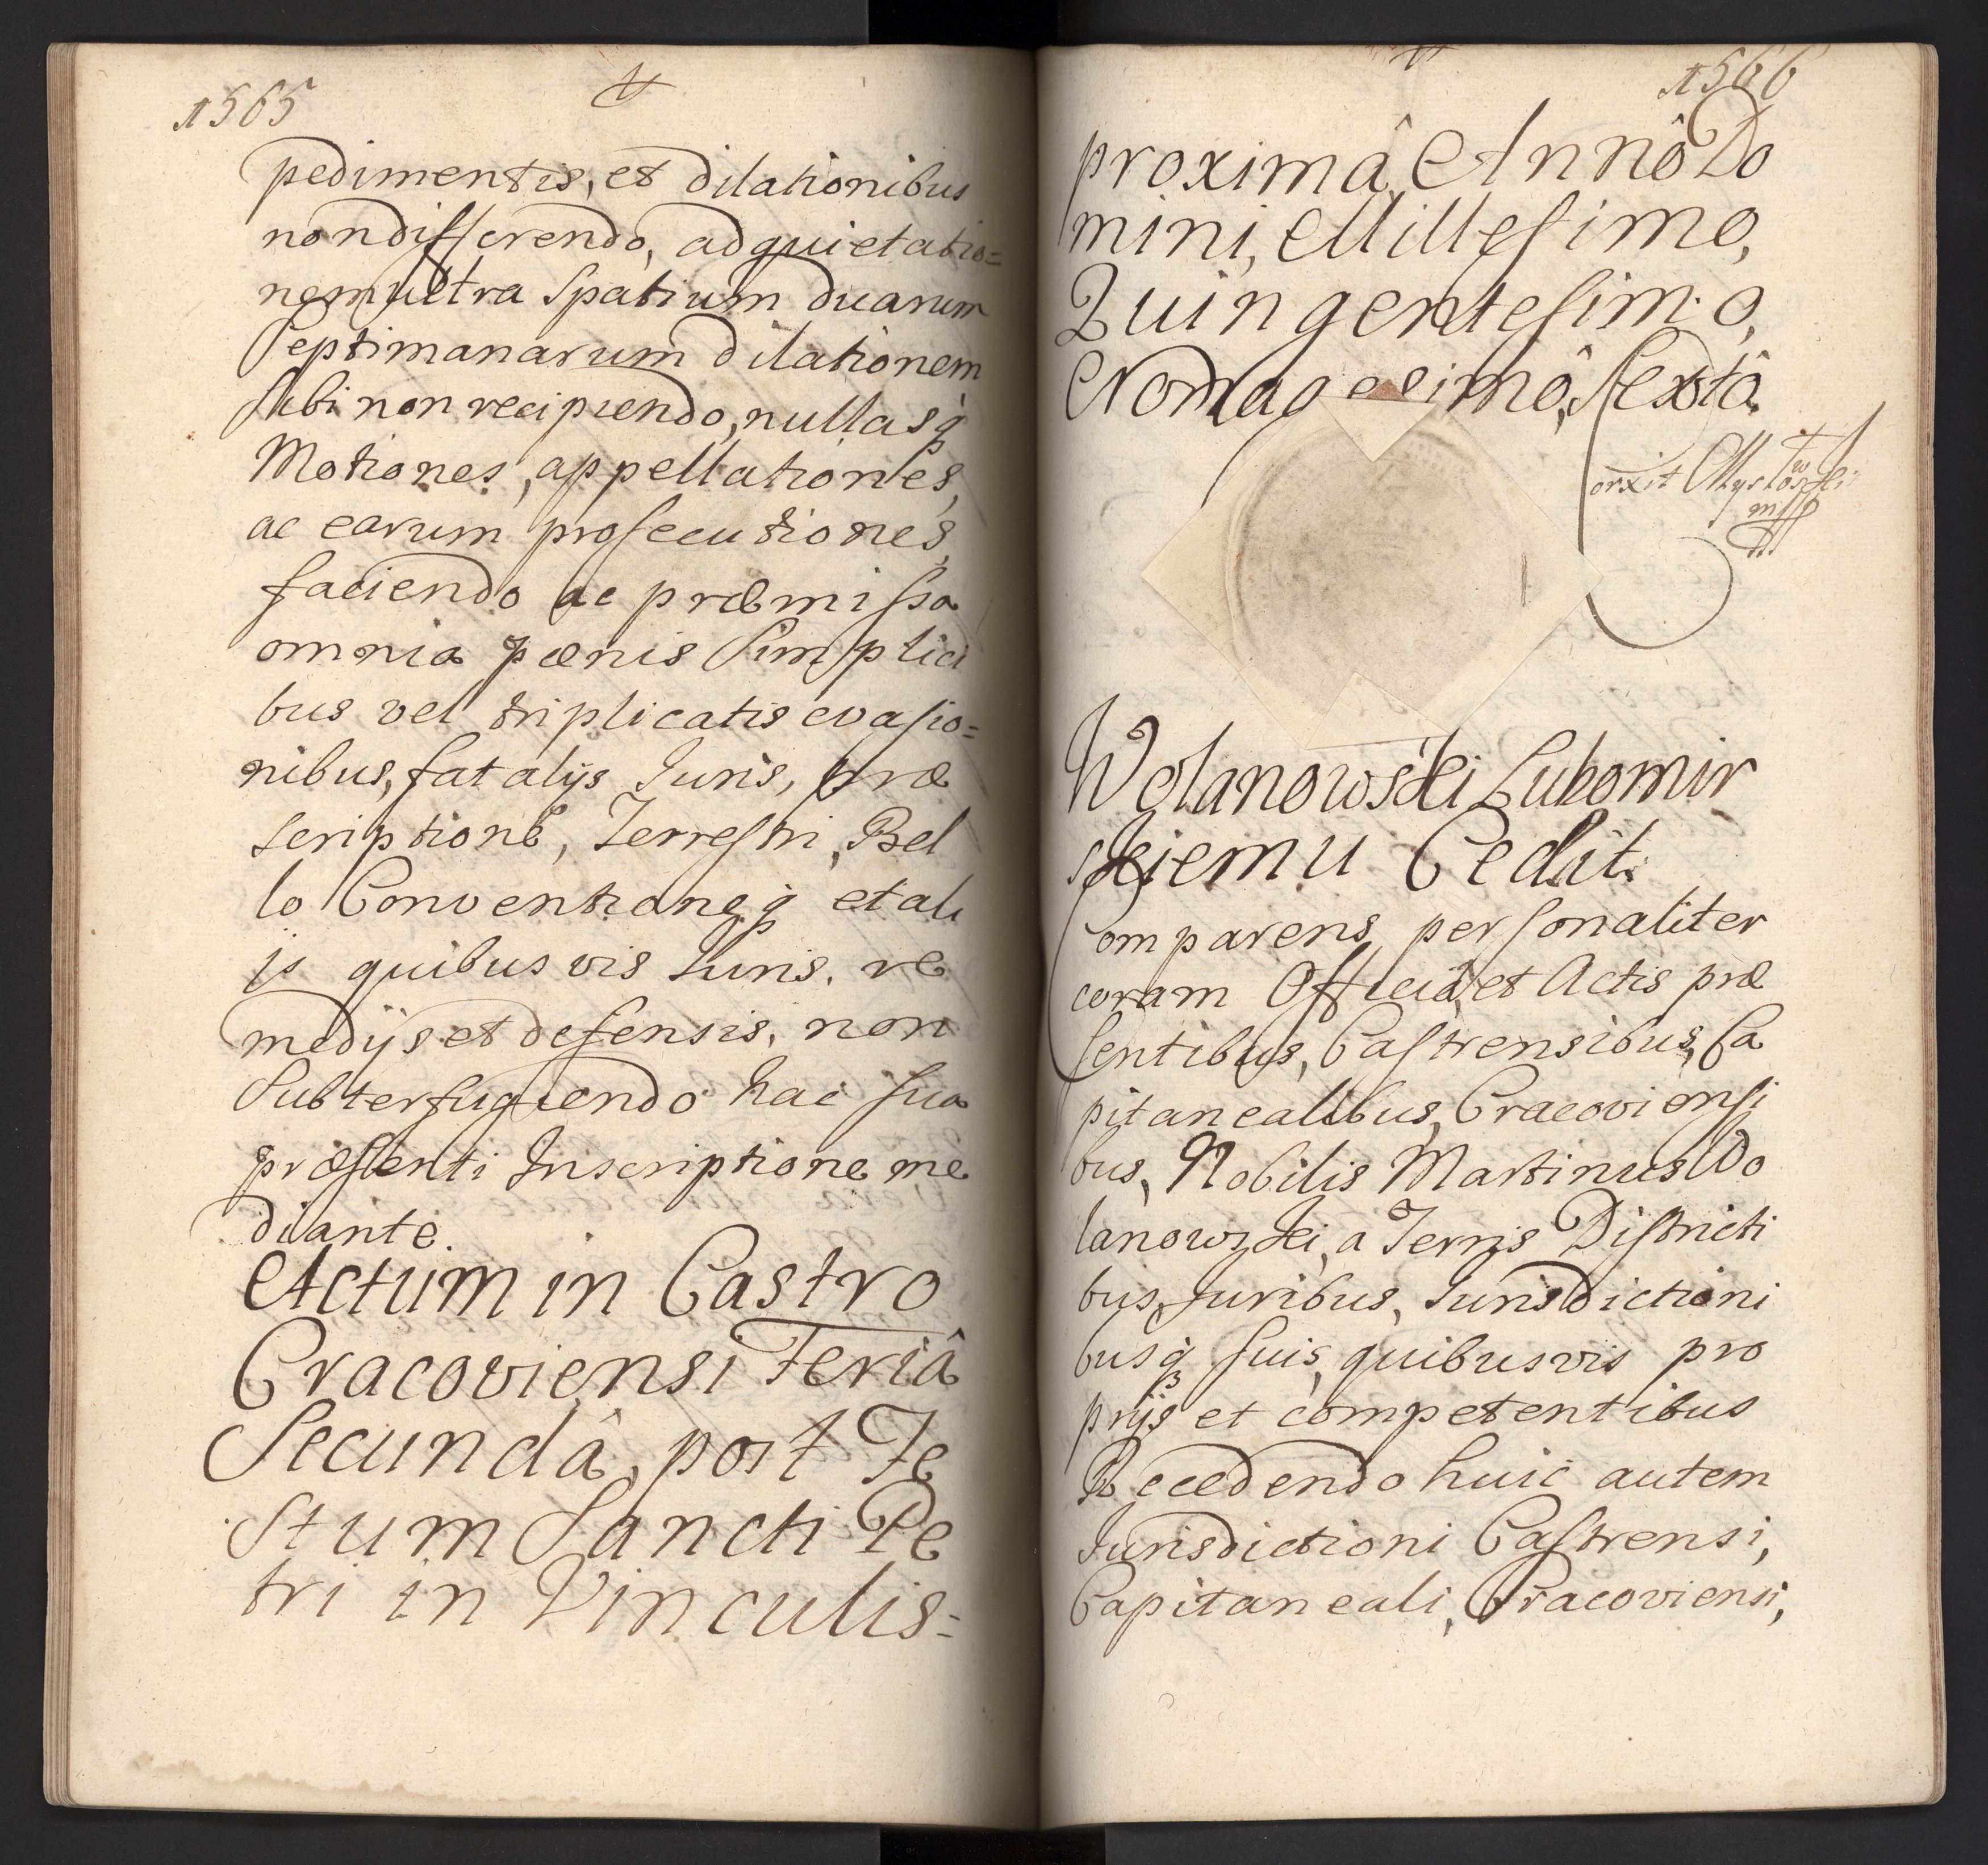 1565
pedimentis, et dilationibus
non differendo, ad quietatio=
nem ultra Spatium duarum
Septimanarum dilationem
Sibi non recipiendo, nullasq́
Motiones, appellationes,
ac earum prosecutiones,
faciendo ac præmissa
omnia pœnis Simplici
bus vel triplicatis evasio=
nibus, fatalijs Iuris, præ
scriptione, Terrestri, Bel
lo Conventioneq́ et ali
js quibusvis Iuris, re
medijs et defensis, non
Subterfugiendo hac sua
præsenti Inscriptione me
diante.
Actum in Castro
Cracoviensi Feriâ
Secundâ, post Fe
stum Sancti Pe
tri in Vinculis=
1566
proximâ, Annô Do
mini, Millesimo,
Quingentesimo,
Nonagesimô, Sextô.
Wolanowski Lubomir
skiemu Cedit.
Comparens personaliter
coram Officiô, et Actis præ
sentibus, Castrensibus, Ca
pitanealibus, Cracoviensi
bus, Nobilis Martinus Wo
lanowski, a Terris Districti
bus, Iuribus, Iurisdictioni
busq́ suis, quibusvis pro
prijs et competentibus
Recedendo huic autem
Iurisdictioni Castrensi,
Capitaneali, Cracoviensi,